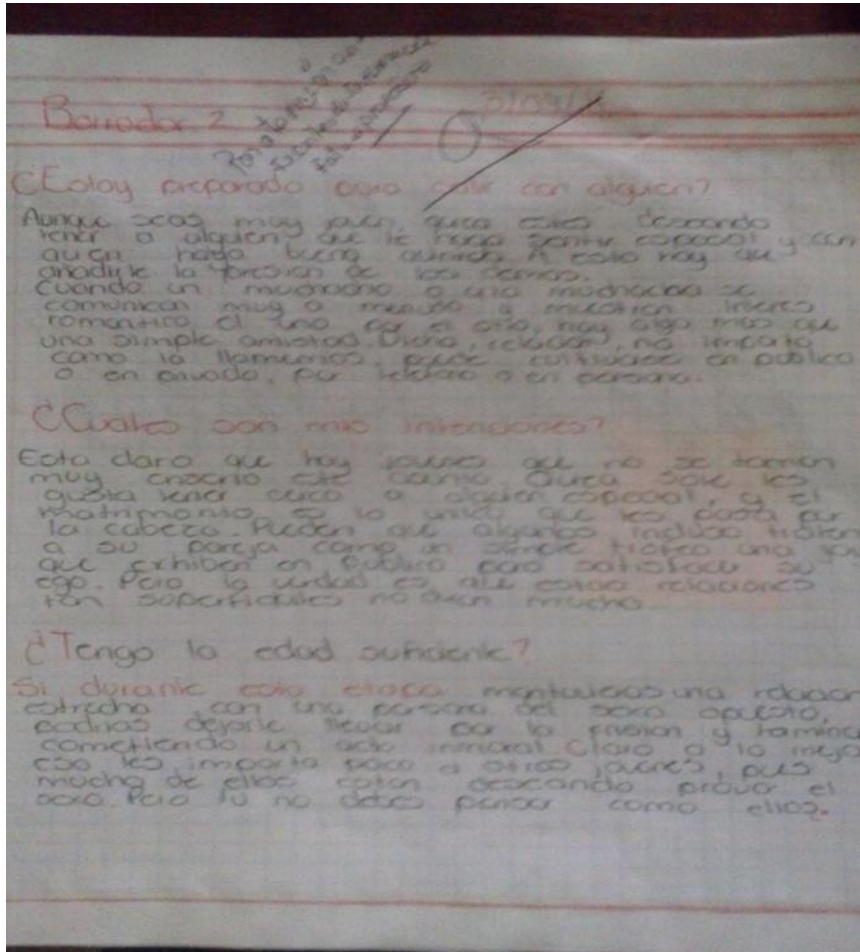 Borrador 2
¿Estoy preparado para salir con alguien?
Aunque seas muy joven, quiza estes deseando
tener a alguien que te haga sentir especial y con
quien hacer buena A esto hay que
anadirle la presion de los demas.
Cuando un muchacho o una muchacha se
comunican muy a menudo o muestran interes
romantico el uno por el otro, hay algo mas que
una simple amistad Dicha, relacion, no importa
como la llamemos, puede cultivarse en publico
o en privado, por telefono o en persona.
¿Cuales son mis intenciones?
Esta claro que hay jovenes que no se toman
muy enserio este Quiza solo les
gusta tener cerca a alguien especial, y el
matrimonio, es lo unico que les pasa por
la cabeza. Pueden que algunos incluso traten
a su pareja como un simple trofeo una
que exhiben en publico para satisfacer su
ego. Pero la verdad es que estas relaciones
tan superficiales no duran mucho
¿Tengo la edad suficiente?
Si durante esta etapa mantuvieras una relacion
estrecha, con una persona del sexo opuesto,
podrias dejarte llevar por la pasion y
cometiendo un acto inmoral Claro a lo mejo
eso les importa poco a otros jovenes, pues
mucho de ellos estan deseando provar el
sexo. Pero tu no debes pensar como ellos.